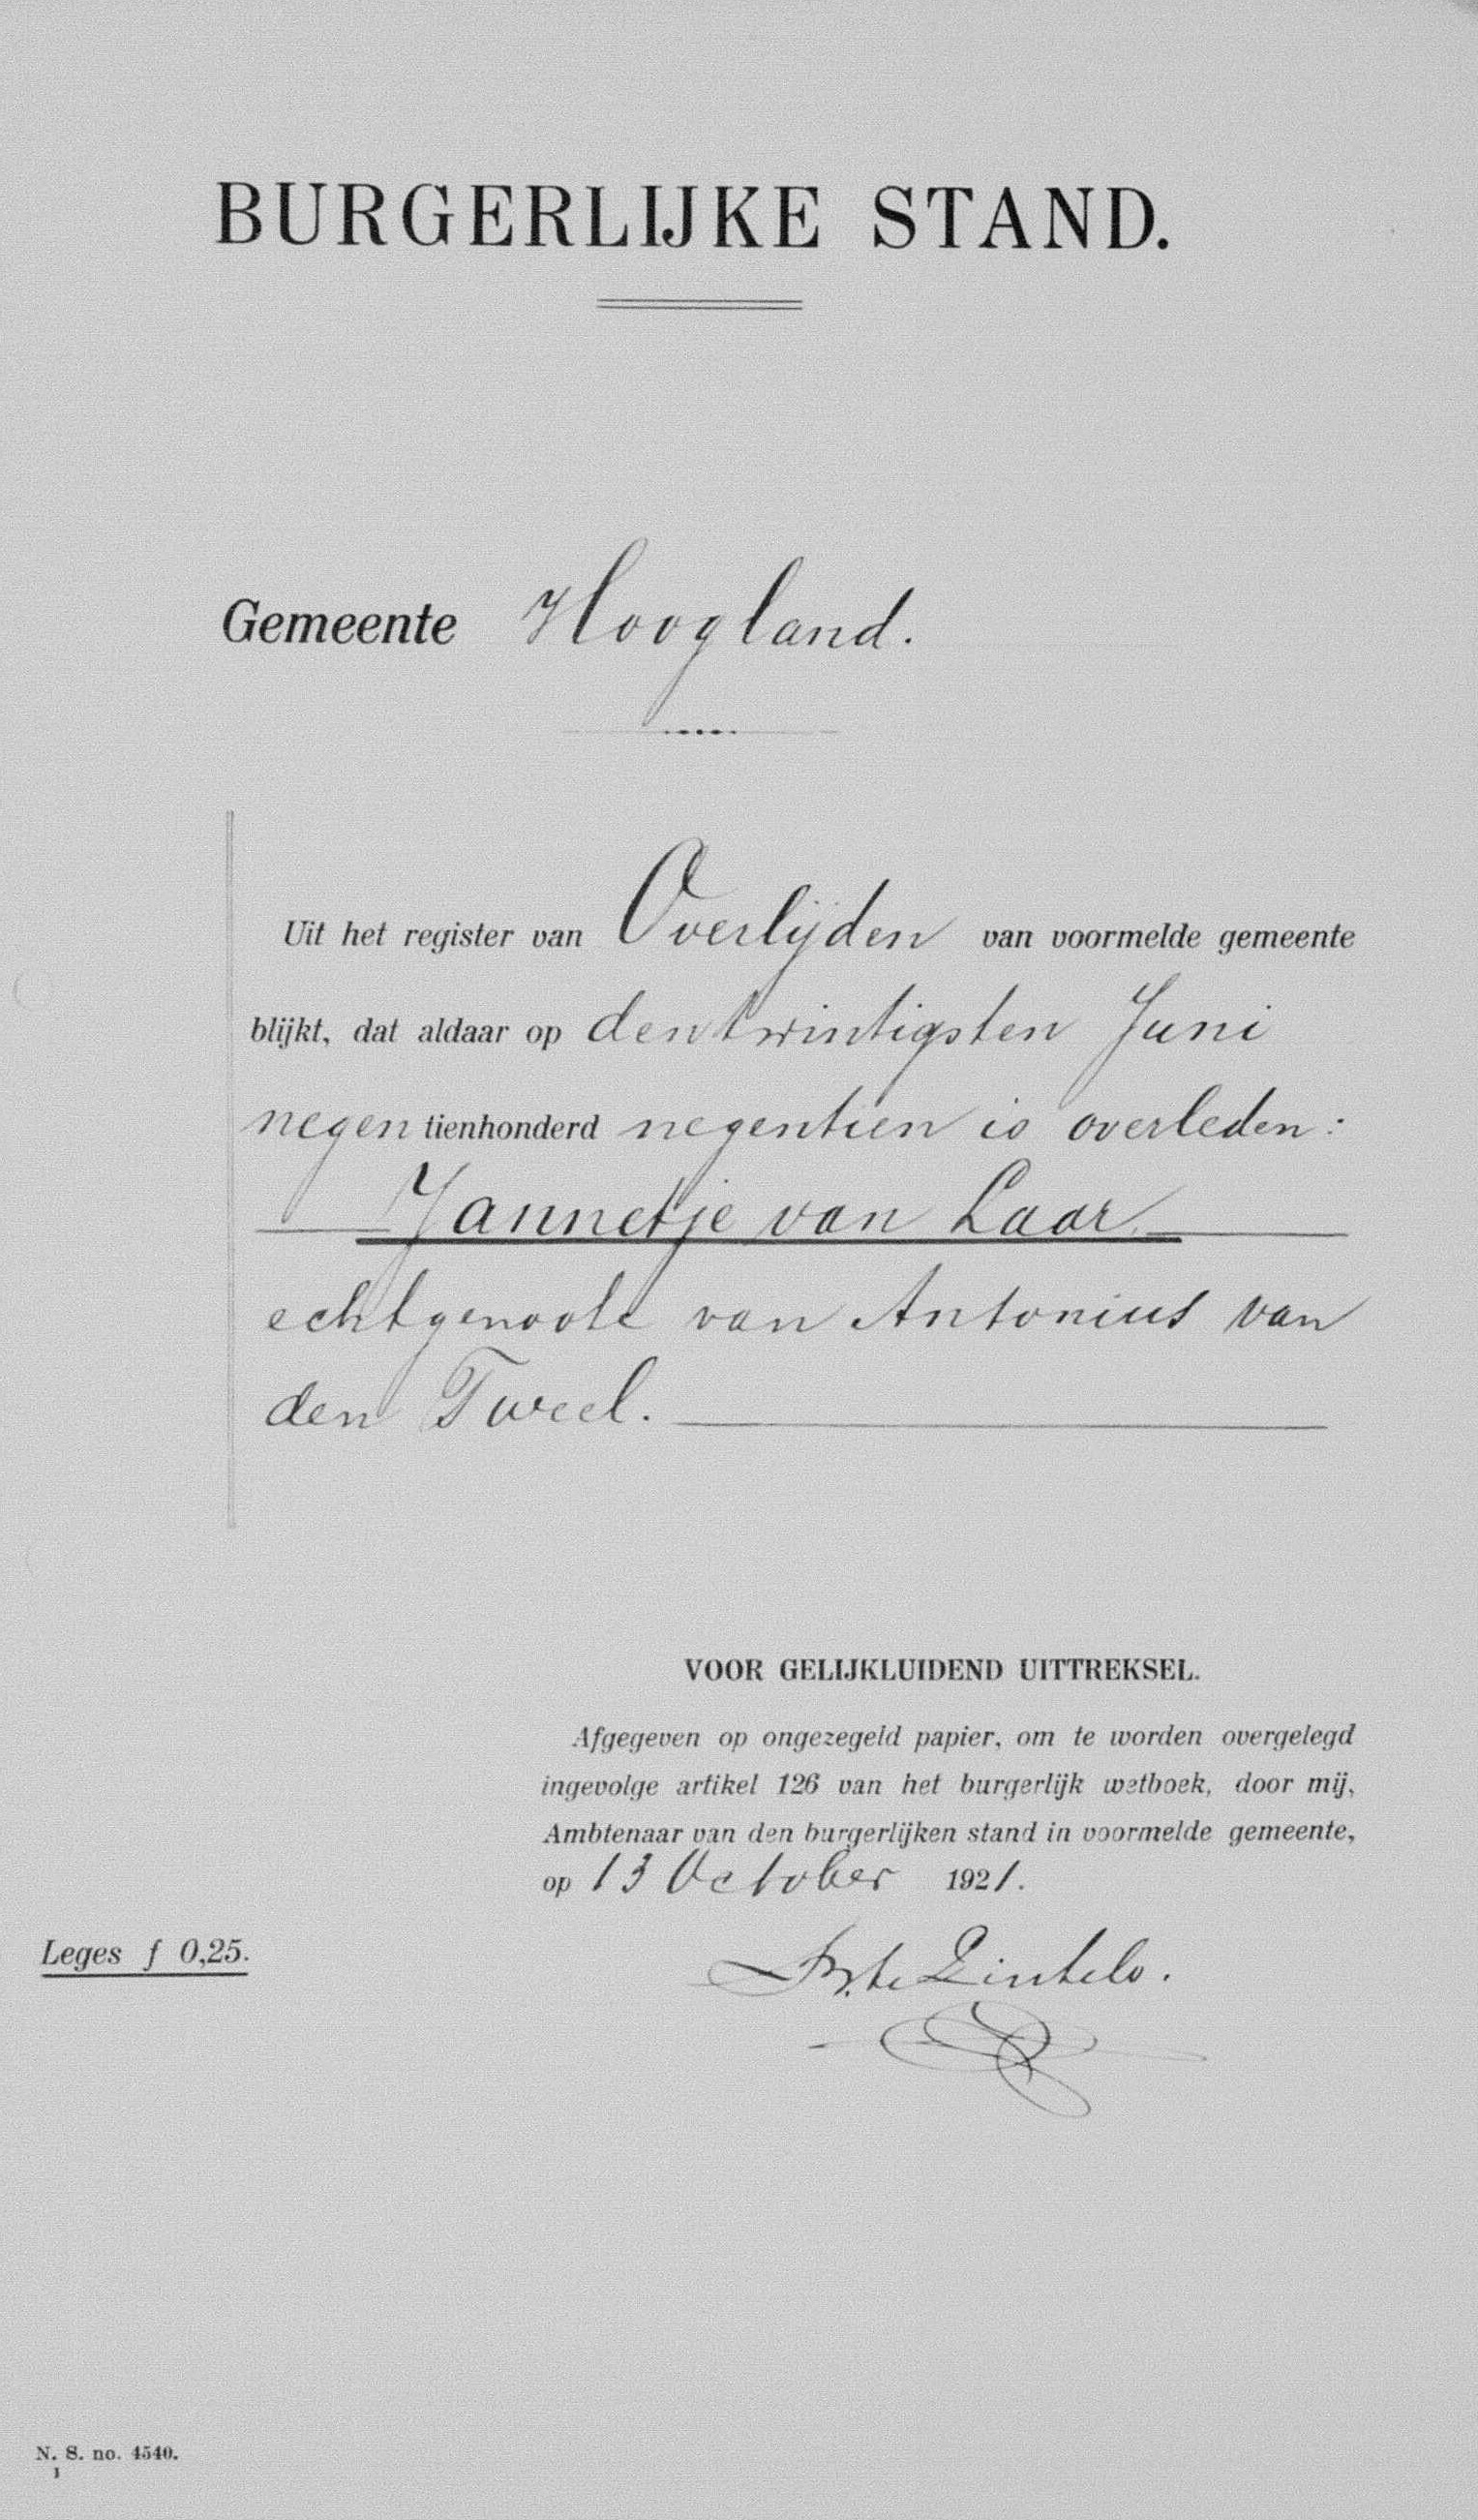 BURGERLIJKE STAND.
Gemeente Hoogland.
Uit het register van Overlijden van voormelde gemeente
blijkt, dat aldaar op den twintigsten Juni
negen tienhonderd negentien is overleden:
Jannetje van Laar
echtgenoote van Antonius van
den Tweel.
VOOR GELIJKLUIDEND UITTREKSEL.
Afgegeven op ongezegeld papier, om te worden overgelegd
ingevolge artikel 126 van het burgerlijk wetboek, door mij,
Ambtenaar van den burgerlijken stand in voormelde gemeente,
op 13 October 1921.
Leges f 0,25.
N. S. no. 4540.
1